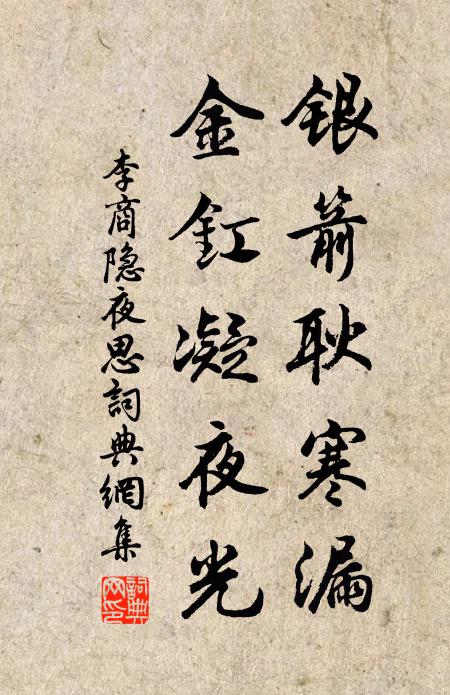 银箭耿寒漏
金釭凝夜光
李商隐夜思詞典網集
詞典網印